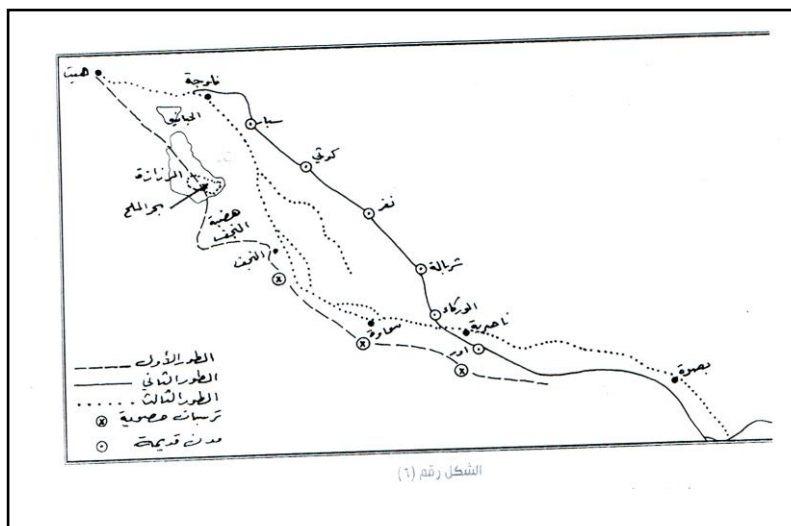 هيت
فلوجة
الحبانية
سبار
كوثي
الرزازة
بحر الملح
نفر
هضبة
النجف
النجف
شربالة
الوركاء
سماوة
ناصرية
اور
بصرة
الطور الأول
الطور الثاني
الطور الثالث
ترسبات حصوية
مدن قديمة
الشكل رقم (٦)